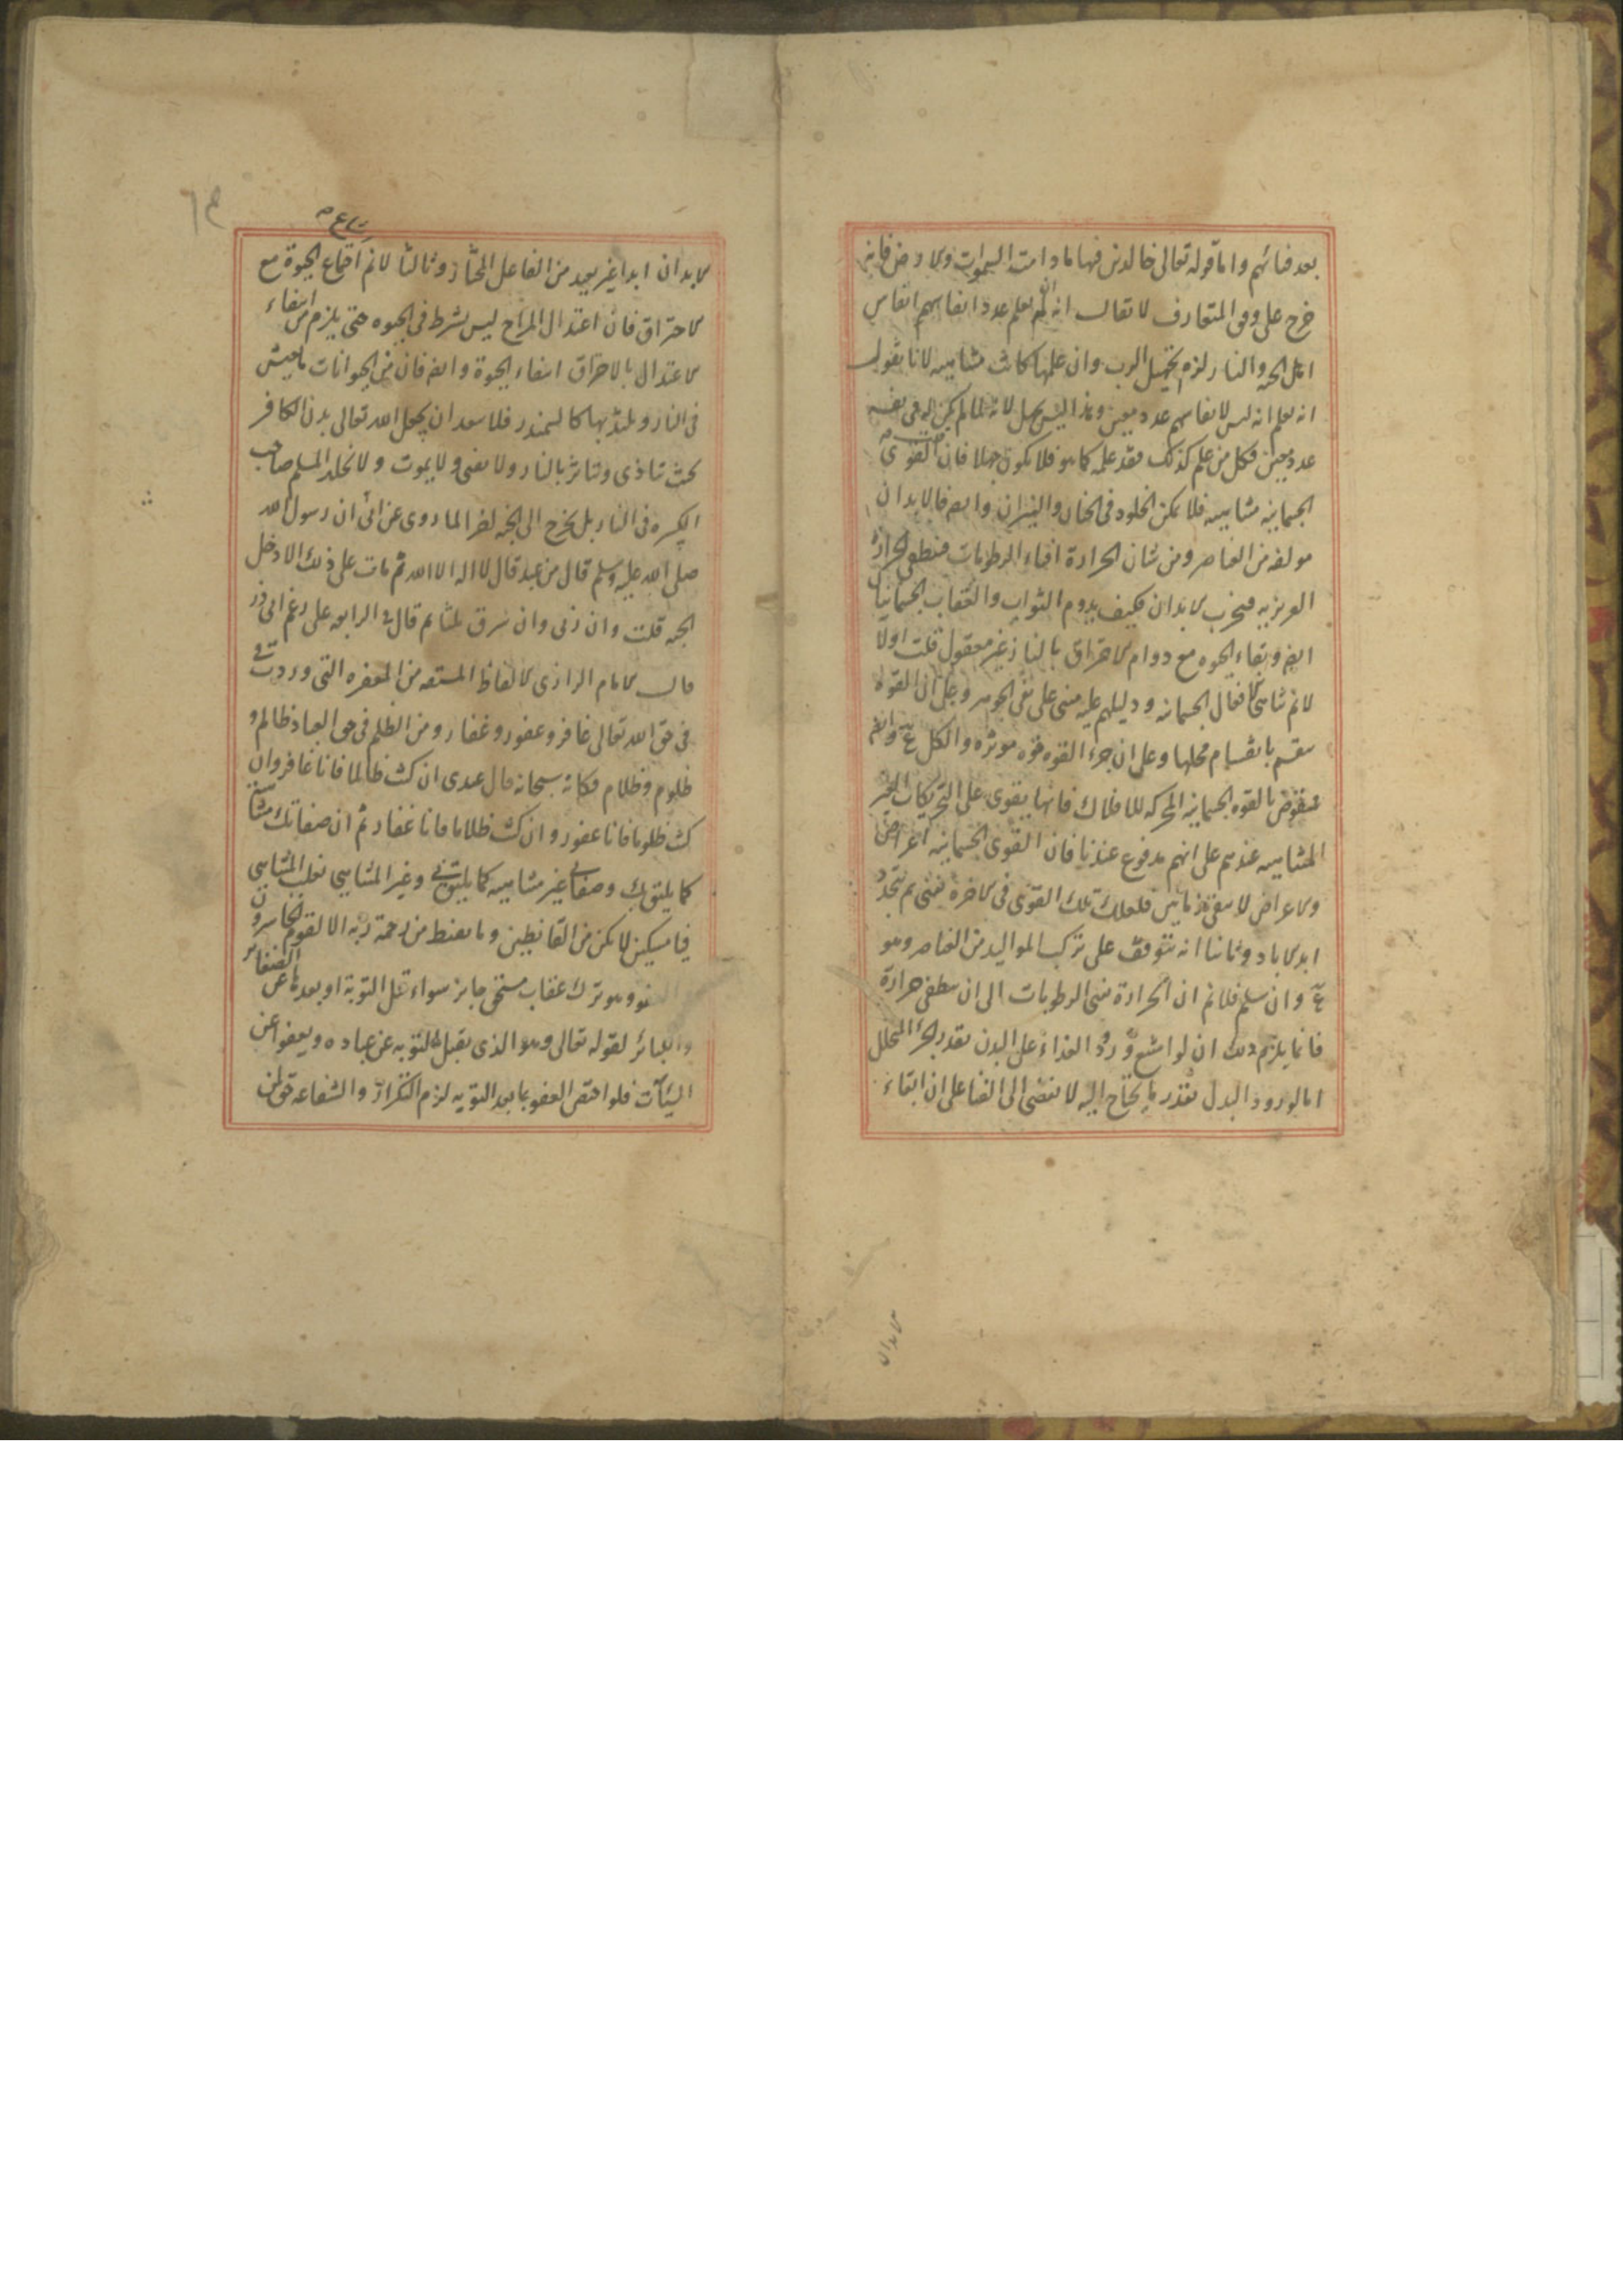 بعد فنائهم واما قوله تعالى خالدين فيها ما دامت السموات والارض فانه
خرج على وفق المتعارف لا يقال انه ان لم يعلم عدد انفاسهم انفاس
اهل الجنة والنار لزم تجهيل الرب وان علمها كانت متناهيه لانا نقول
انه يعلم انه ليس لانفاسهم عدد معين وهذا ليس بجهل لانه لما لم يكن له في نفسه
عدد معين فكل من علم كذلك فقد علمه كما هو فلا يكون جهلا فان القوى
الجسمانية متناهيه فلا يمكن الخلود في الجنان والنيران وايضا فالابدان
مولفه من العناصر ومن شان الحرارة افناء الرطوبات فتنطفى الحرارة
الغريزيه فتخرب الابدان فكيف يدوم الثواب والعقاب الجسمانيان
ايضا وبقاء الحيوه مع دوام الاحتراق بالنار غير معقول قلت اولا
لانم تناهى الافعال الجسمانيه ودليلهم عليه مبنى على نفى الجوهر وعلى ان القوه
تنقسم بانقسام محلها وعلى ان جزء القوه قوه موثره والكل ع وايضا
منقوض بالقوه الجسمانية المحركه للافلاك فانها يقوى على التحريكات الغير
المتناهيه عندهم على انهم مدفوع عندنا فان القوى الجسمانيه اعراض
والاعراض لا يبقى زمانين فلعلك تلك القوى في الاخرة تفنى ثم تتجدد
ابد الاباد وثانيا انه يتوقف على تركب المواليد من العناصر وهو
ع وان سلم فلانم ان الحرارة تفنى الرطوبات الى ان تنطفى حرارة
فانما يلزم ذلك ان لو امتنع ورود الغذاء على البدن بقدر الجزء المتحلل
اما لو ورود البدل بقدر ما يحتاج اليه لا تفضى الى الفنا على ان ابقاء
الابدان
الابدان ابدا غير بعيد من الفاعل المختار وثالثا لانم اجتماع الحيوة مع
الاحتراق فان اعتدال المزاج ليس بشرط في الحيوه حتى يلزم من انتفاء
الاعتدال بالاحتراق انتفاء الحيوة وايضا فان من الحيوانات ما يعيش
في النار ويلتذ بها كالسمندر فلا يبعد ان يجعل الله تعالى بدن الكافر
بحيث يتاذى ويتاثر بالنار ولا يفنى ولا يموت ولا يخلد المسلم صاحب
الكبيره في النار بل يخرج الى الجنه لخبر الما روى عن ان رسول الله
صلى الله عليه وسلم قال من عبد قال لا اله الا الله ثم مات على ذلك الا دخل
الجنه قلت وان زنى وان سرق ثلثا ثم قال في الرابعه على رغم ابى ذر
قال الامام الرازى الالفاظ المشتقه من المغفره التى وردت
في حق الله تعالى غافر وغفور وغفار ومن الظلم في حق العباد ظالم و
ظلوم وظلام فكانه سبحانه قال عبدى ان كنت ظالما فانا غافر وان
كنت ظلوما فانا غفور وان كنت ظلاما فانا غفار ثم ان صفاتك متناهيه
كما يليق بك وصفاتى غير متناهيه كما يليق بى وغير المتناهى يغلب المتناهى
فيا مسكين لا تكن من القانطين وما يقنط من رحمة ربه الا القوم الخاسرون
العفو وهو ترك عقاب مستحق جايز سواء قبل التوبة او بعدها عن الصغائر
والكبائر لقوله تعالى وهو الذى يقبل التوبه عن عباده ويعفو عن
السيئات فلو اختص العفو بما بعد التوبه لزم التكرار والشفاعه حق لمن